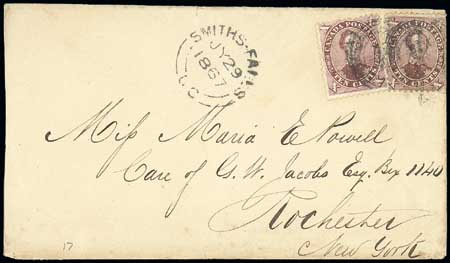 SMITHS-FALLS
JY 29
1867
CANADA POSTAGE
CANADA POSTAGE
Miſs Maria E Powell
Care of G. W. Jacobs Esq. Box 1140
Rochester
New York
17